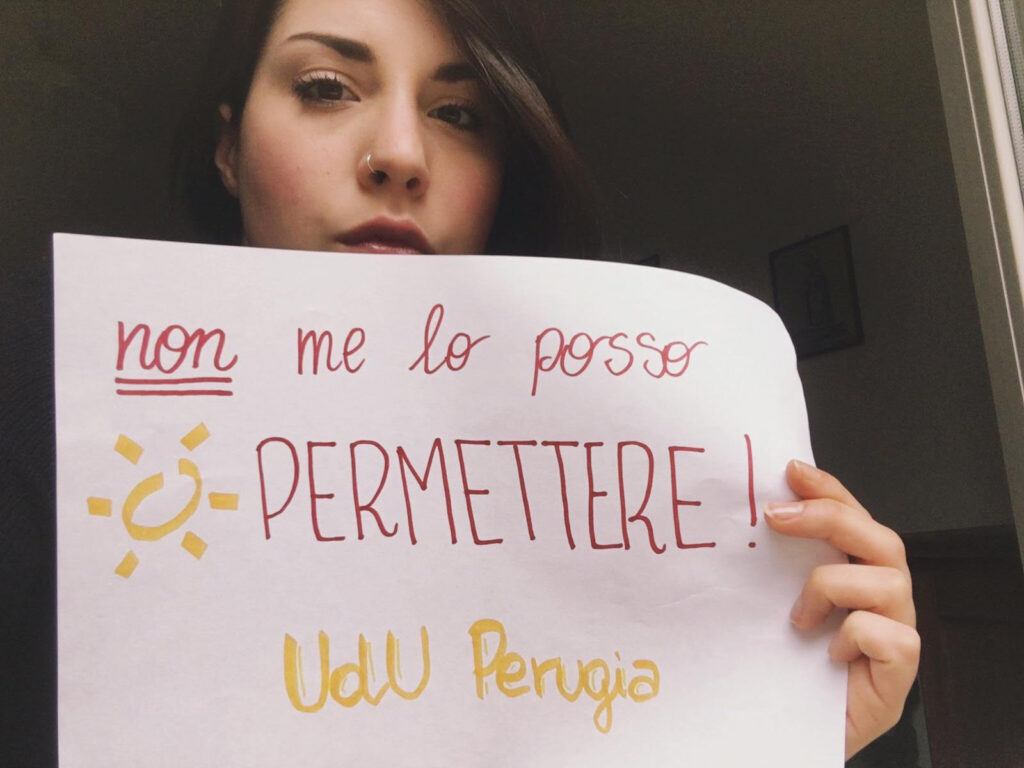 non me lo posso
PERMETTERE!
UdU Perugia